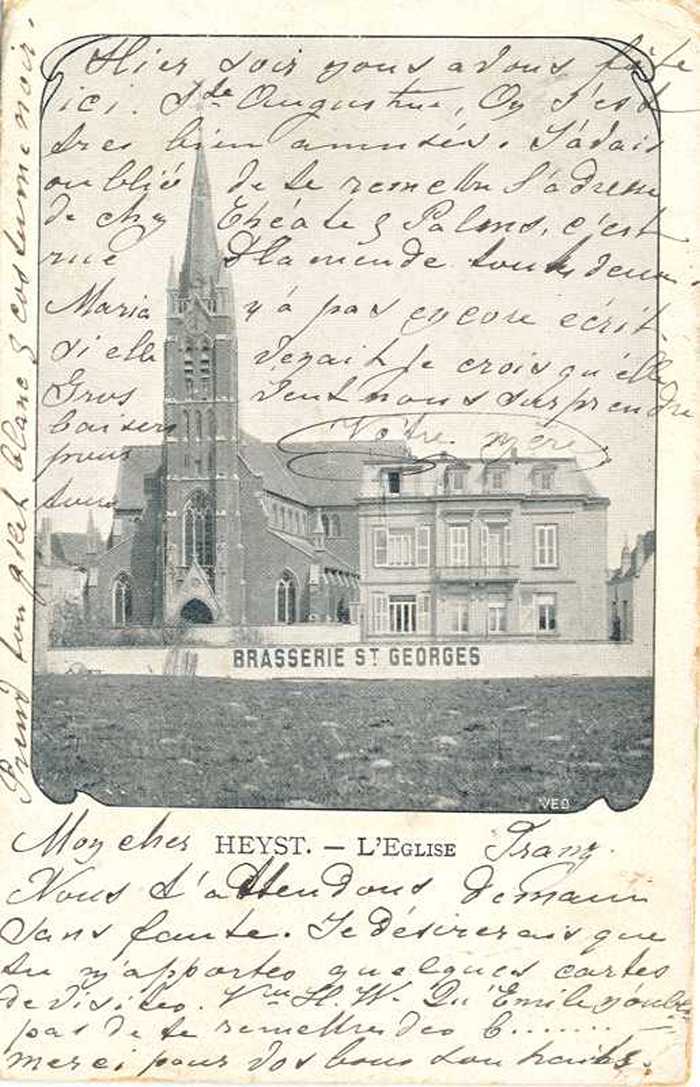 Hier soir nous avons fêté
ici. Ste Augustine, On s'est
très bien amusés. J'avais
oublié de te remettre l'adresse
de chez Théâte & Palms, c'est
rue Flamande toutes deux.
Maria n'a pas encore écrit.
si ella venait je crois qu'elle
Gros veut nous surprendre
baisers
pour
tous
Votre mère
Prend ton gilet blanc & costume noir.
BRASSERIE ST GEORGES
VED
Moy cher HEYST. — L'EGLISE Franz.
Nous t'attendons demain
sans faute. Je désirerais que
tu m'apportes quelques cartes
de visites. H. W. Qu'Emile n'oublie
pas de te remettre des b........ —
merci pour vos bons souhaits.